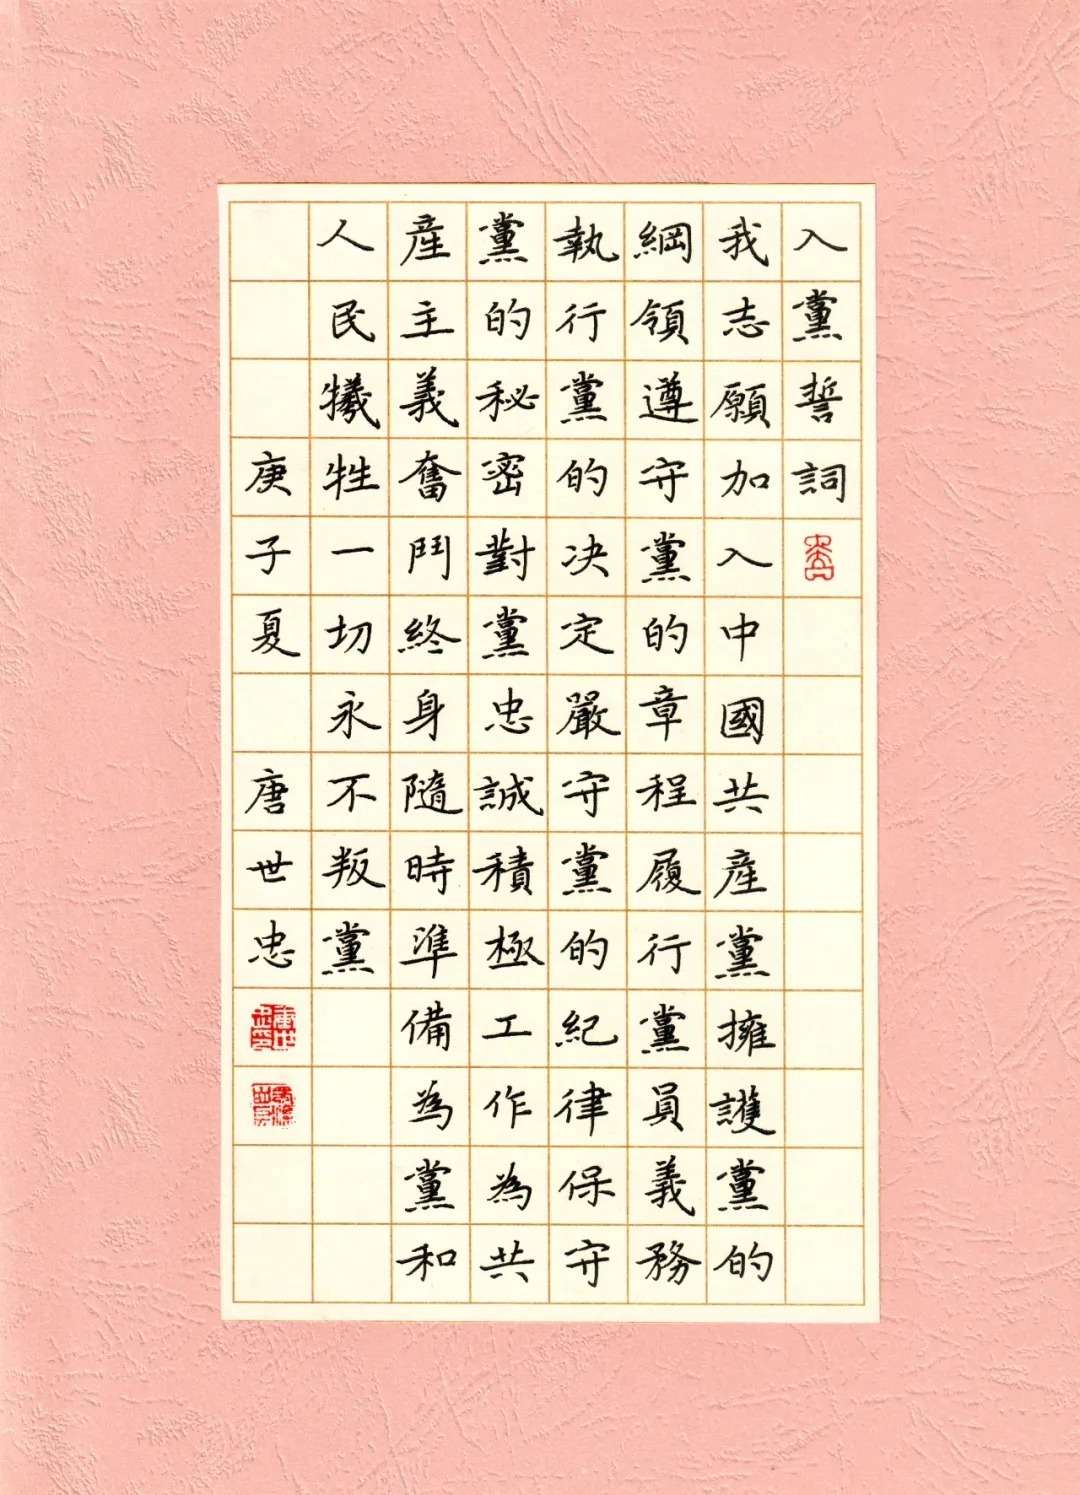 入黨誓詞
我志願加入中國共產黨擁護黨的
綱領遵守黨的章程履行黨員義務
執行黨的决定嚴守黨的紀律保守
黨的秘密對黨忠誠積極工作為共
產主義奮鬥終身隨時準備為黨和
人民犧牲一切永不叛黨
庚子夏 唐世忠